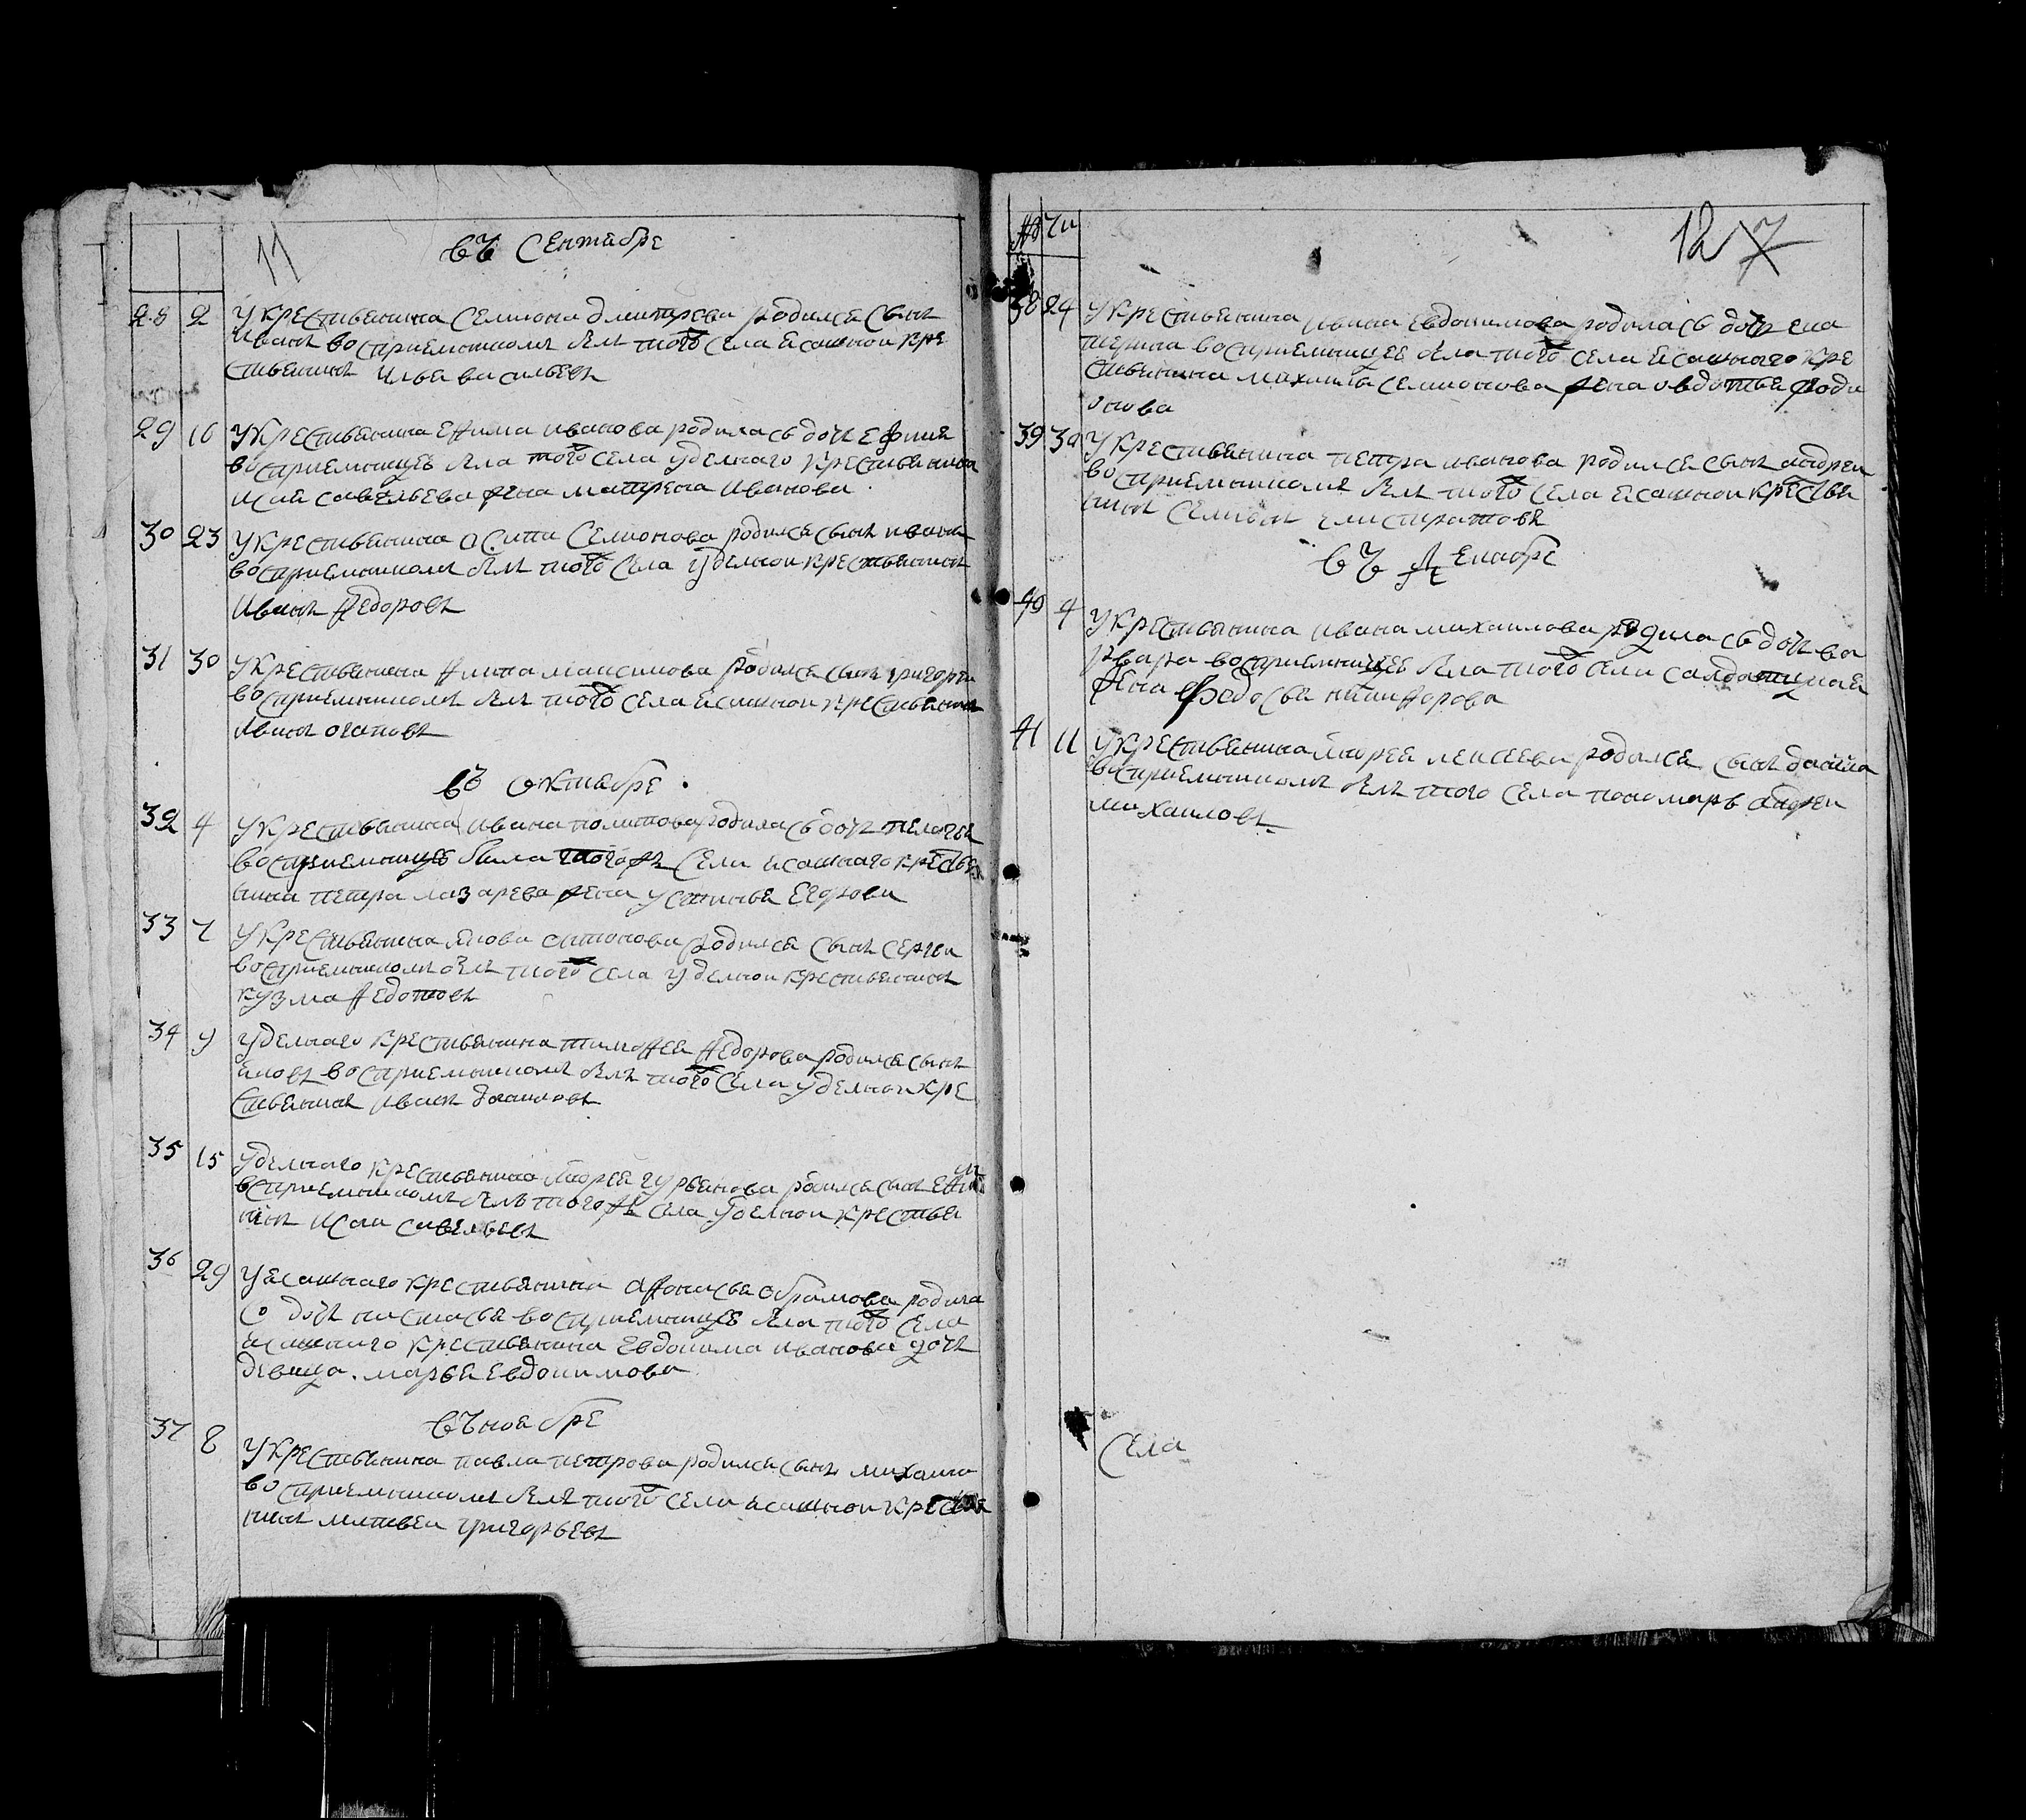 11
въ Сентебре
28 2 У крестьенина Семиона дмитрева родился сынъ
иванъ восприемникомъ былъ того села есашнои кре
стьенинъ илья васильевъ
29 16 У крестьенина ефима иванова родилась дочь
восприемницеѣ была того села удельнаго крестьенина
савельева жена матрена иванова
30 23 У крестьенина осипа Семионова родился сынъ иванъ
восприемникомъ былъ того села удельнои крестьенинъ
иванъ федоровъ
31 30 У крестьенина максимова родился сынъ григореи
восприемникомъ былъ того села есашнои крестьенинъ
иванъ
въ октебре
32 4 У крестьенина ивана родилась дочь пелагея
восприемницеѣ была тогожъ села есашнаго кресте
нина петра лазарева жена устинья егорова
33 7 У крестьенина якова антонова родился сынъ сергеи
восприемникомъ былъ того села удельнои крестьенинъ
кузма федотовъ
34 9 удельнаго крестьенина тимофея федорова родился сынъ
яковъ восприемникомъ былъ того села удельнои кре
стьенинъ иванъ даниловъ
35 15 удельнаго крестьенина андрея гурьянова родился сынъ ефим
восприемникомъ былъ тогожъ села удельнои крестье
нинъ исаи савельевъ
36 29 У есашнаго крестьенина афонасья абрамова родила
с дочь настасья восприемницеѣ была того села
есашнаго крестьенина евдокима иванова дочь
девица марья евдокимова
въ ноебре
37 8 У крестьенина павла петрова родился сынъ михаила
восприемникомъ былъ того села есашнои кресте
нинъ матвеи григорьевъ
№ Чи
12 7
38 24 У крестьенина ивана евдокимова родилась дочь ека
терина восприемницеѣ была того села есашнаго кре
стьенина михаила семионова жена овдотья роди
онова
39 30 У крестьенина петра иванова родился сынъ андреи
восприемникомъ былъ того села есашнои крестье
нинъ семионъ елистратовъ
въ декабре
40 4 У крестьенина ивана михаилова родилась дочь ва
рвара восприемницеѣ была того села салдатцкая
жена федосья никифорова
41 11 У крестьенина андрея лексеева родился сынъ данила
восприемникомъ былъ того села пономарь андреи
михаиловъ
Села